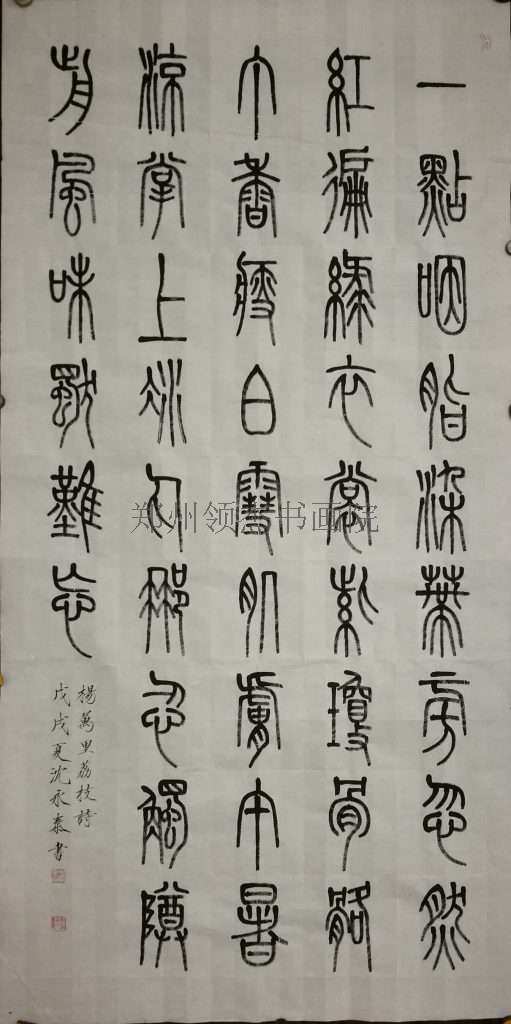 一點咽脂染葉旁忽然
紅遍綠衣裳紫瓊骨骼
丁香瘦白雪肌膚午暑
涼掌上冰丸那忍觸樽
前風味獨難忘
楊萬里荔枝詩
戊戌夏沈承泰書
郑州领书画院